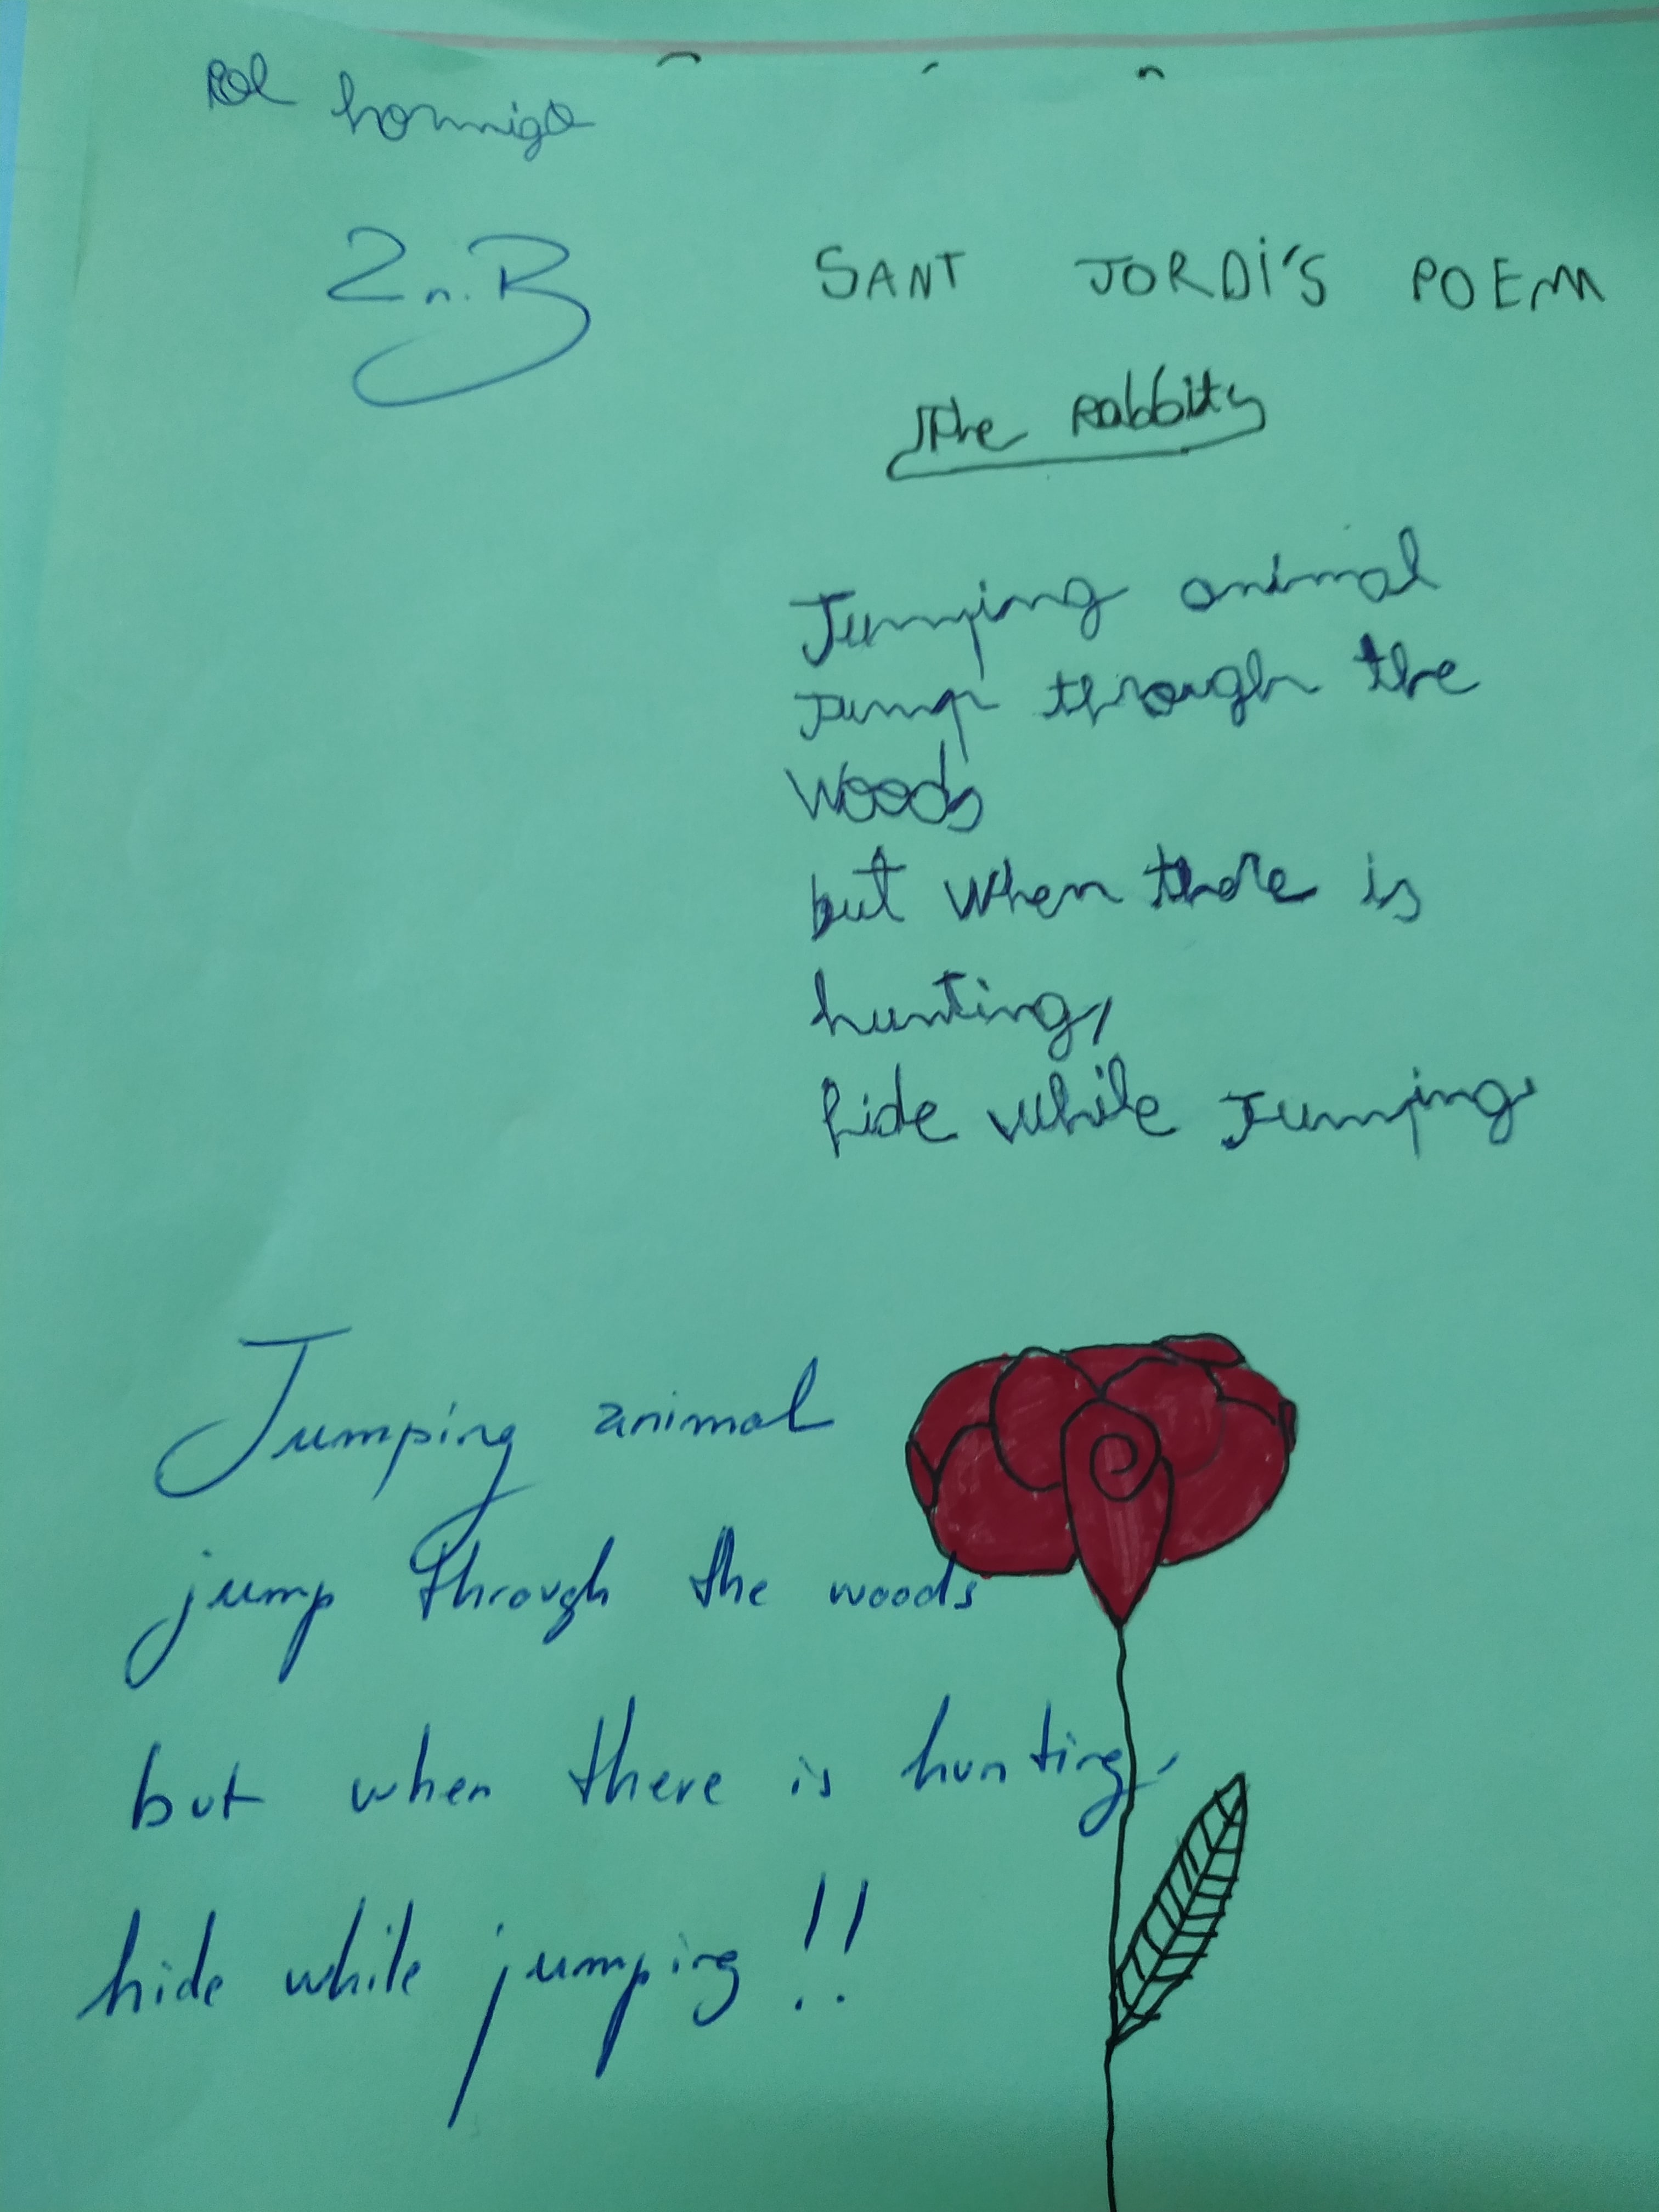 Pol hormigo
2n. B
SANT JORDI'S POEM
The Rabbits
Jumping animal
Jump through the
Woods
but when there is
hunting,
hide while Jumping.
Jumping animal
jump through the woods
but when there is hunting,
hide while jumping!!